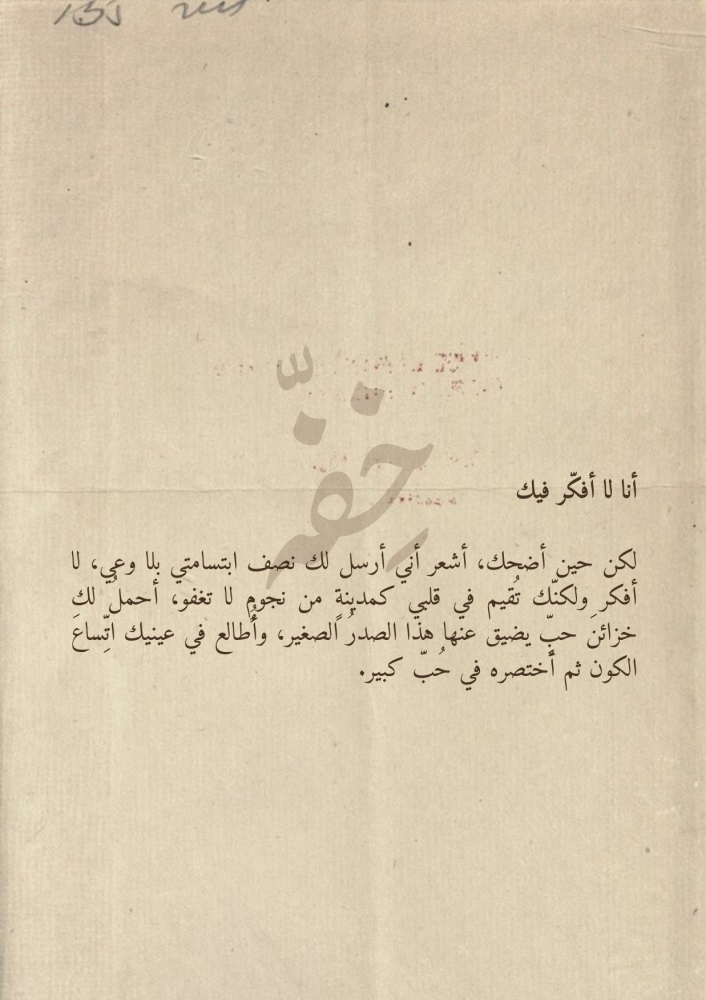 خِفّه
أنا لا أفكّر فيك
لكن حين أضحك، أشعر أني أرسل لك نصف ابتسامتي بلا وعي، لا
أفكر ولكنّك تُقيم في قلبي كمدينةٍ من نجومٍ لا تغفو، أحملُ لكِ
خزائنَ حبٍّ يضيق عنها هذا الصدرُ الصغير، وأُطالع في عينيك اتِّساعَ
الكون ثم أختصره في حُبّ كبير.